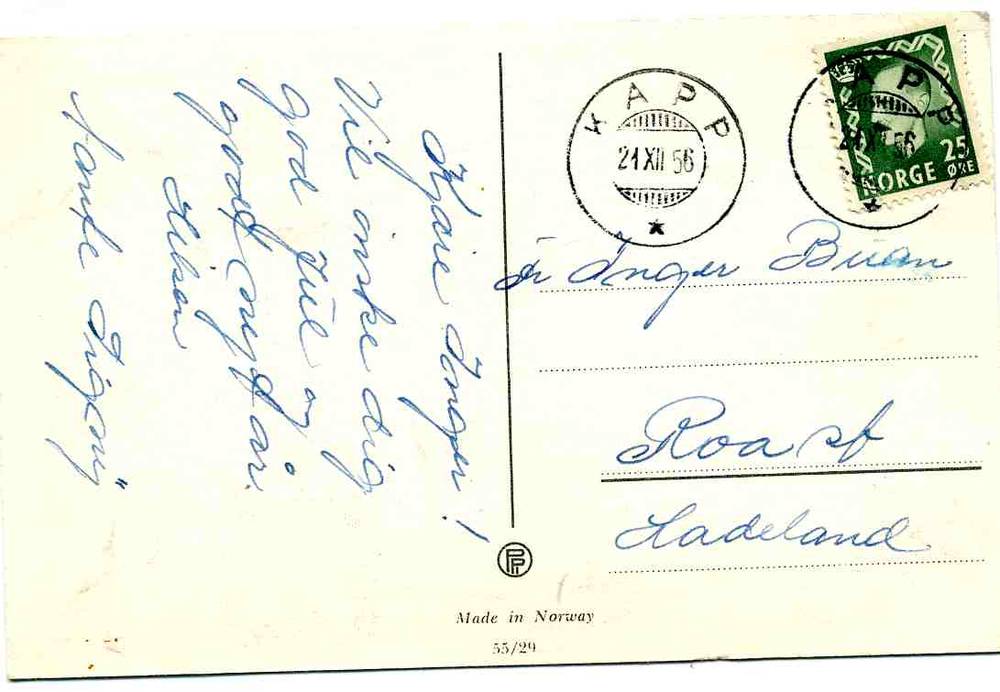 Kjære Inger!
Vil önske dig
god Jul og
godt nyttår.
Hilsen
tante
KAPP
21 XII 56
KAPP
21 XII 56
NORGE 25 ØRE
Fr Inger Buan
Roa st
Hadeland
PP
Made in Norway
55/29